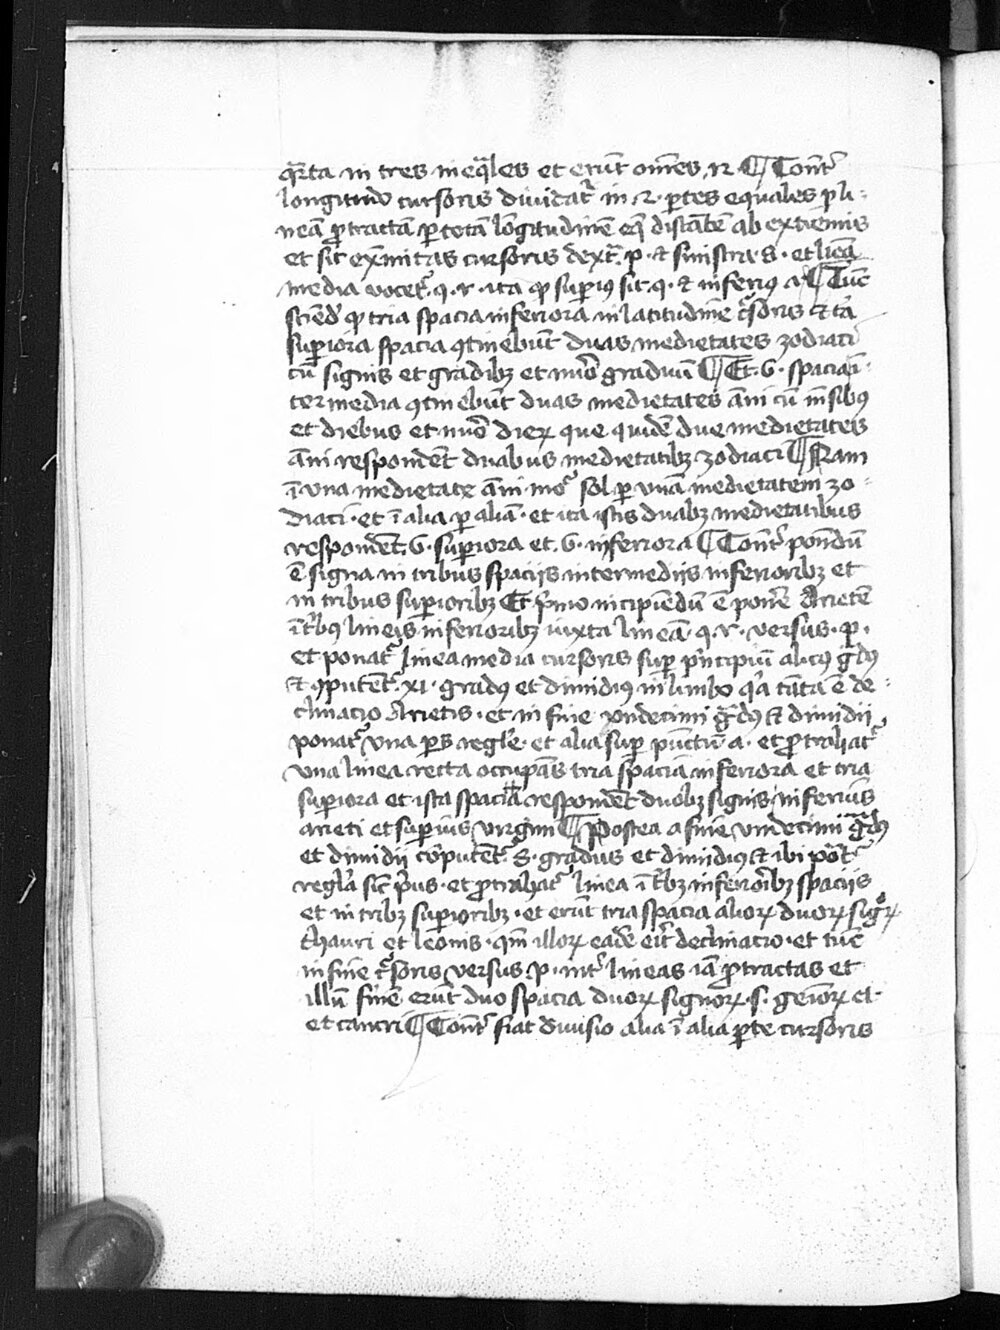 q̄rta in tres ineq̄les et erūt om̄es .12. ¶ Cont᷑
longitudo cursoris diuidat᷑ in .2. ꝑtes equales ꝑ li-
neā ꝓtractā ꝑ totā lōgitudinē eiꝰ distātē ab extremis
et sit ex̄mitas cursoris dext᷑ .p. ⁊ sinistra .s. et linea
media vocet᷑ .q.r. ita ꝙ suꝑius sit .q. ⁊ inferiꝰ .r. ¶ Tūc
sciēd̄ ꝙ tria spacia inferiora in latitudine c᷑soris ⁊ t̄a
suꝑiora spacia ꝯtinebūt duas medietates zodiaci
cū signis et gradibꝫ et nūo graduū ¶ Et .6. spacia ī-
termedia ꝯtinebūt duas medietates āni cū mēsibꝰ
et diebus et nūo dieꝝ que quidē due medietates
āni respondēt duabus medietatibꝫ zodiaci ¶ Nam
ī una medietate āni mo᷑ sol ꝑ vnā medietatem zo-
diaci . et ī alia ꝑ aliā . et ita istis duabꝫ medietatibus
respondēt .6. suꝑiora et .6. inferiora ¶ Cont᷑ ponēdū
ē signa in tribus spacijs intermedijs inferioribꝫ et
in tribus suꝑioribꝫ Et p̄mo incipiēdū ē ponēe Arietē
ī t̄bꝰ lineis inferioribꝫ iuxta lineā .q.r. versus .p.
et ponat᷑ linea media cursoris suꝑ p̄ncipiū alicꝰ ḡdꝰ
⁊ ꝯputēt᷑ .xi. gradꝰ et dimidiꝰ in limbo q̄a tāta ē de-
clinatio Arietis . et in fine vndecimi ḡdꝰ ⁊ dimidii
ponat᷑ vna ꝑs regle . et alia suꝑ pūctū a . et ꝓtrahat᷑
vna linea recta occupās tria spacia inferiora et tria
suꝑiora et ista spacia respondēt duobꝫ signis inferius
arieti et suꝑius virgini ¶ Postea a fine vndecimi ḡdꝰ
et dimidii cōputēt᷑ .8. gradus et dimidiꝰ ⁊ ibi pōt᷑
regla sic᷑ p̄us . et ꝓtrahat᷑ linea ī t̄bꝫ inferioībꝫ spaciis
et in tribꝫ suꝑioribꝫ . et erūt tria spacia alioꝝ duoꝝ signoꝝ
thauri et leonis . qm̄ illoꝝ eadē eīt declinatio . et tūc
in fine c᷑soris versus .p. int᷑ lineas iā ꝓtractas et
illū finē erūt duo spacia duoꝝ signoꝝ .s. gemioꝝ
et cancri ¶ Cont᷑ fiat diuisio alia ī alia ꝑte cursoris